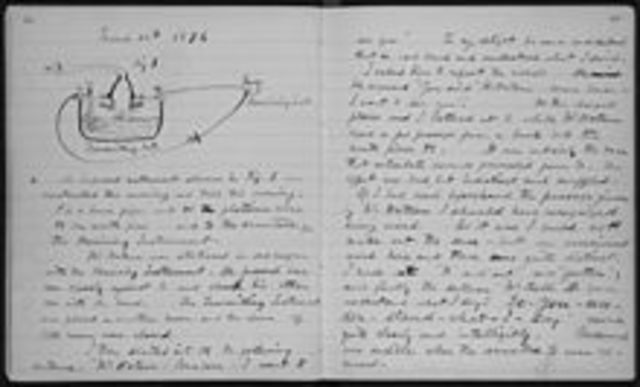 1876
Fig 1
1. The improved instrument shown in Fig. 1 was
constructed this morning and tried this evening.
P is a brass pipe and W the platinum wire
M the mouth piece and S the armature of
the Receiving Instrument.
Mr. Watson was stationed in one room
with the Receiving Instrument. He pressed one
ear closely against S and closed his other
ear with his hand. The Transmitting Instrument
was placed in another room and the doors of
both rooms were closed.
I then shouted into M the following
sentence: Mr Watson Come here I want to
see you". To my delight he came and declared
that he had heard and understood what I said.
I asked him to repeat the words. He
answered "You said Mr Watson come here
I want to see you."
places and I listened at S while Mr Watson
read a few passages from a book into the
mouth piece M. It was certainly the case
that articulate sounds proceeded from S. The
effect was loud but indistinct and muffled.
If I had read beforehand the passage given
by Mr Watson I should have recognized
every word. As it was I could not
make out the sense but an occasional
word here and there was quite distinct.
I made out "to" and "out" and "further";
and finally the sentence "Mr Bell do you
understand what I say? Do-you-un-
der-stand-what-I-say" came
quite clearly and intelligibly.